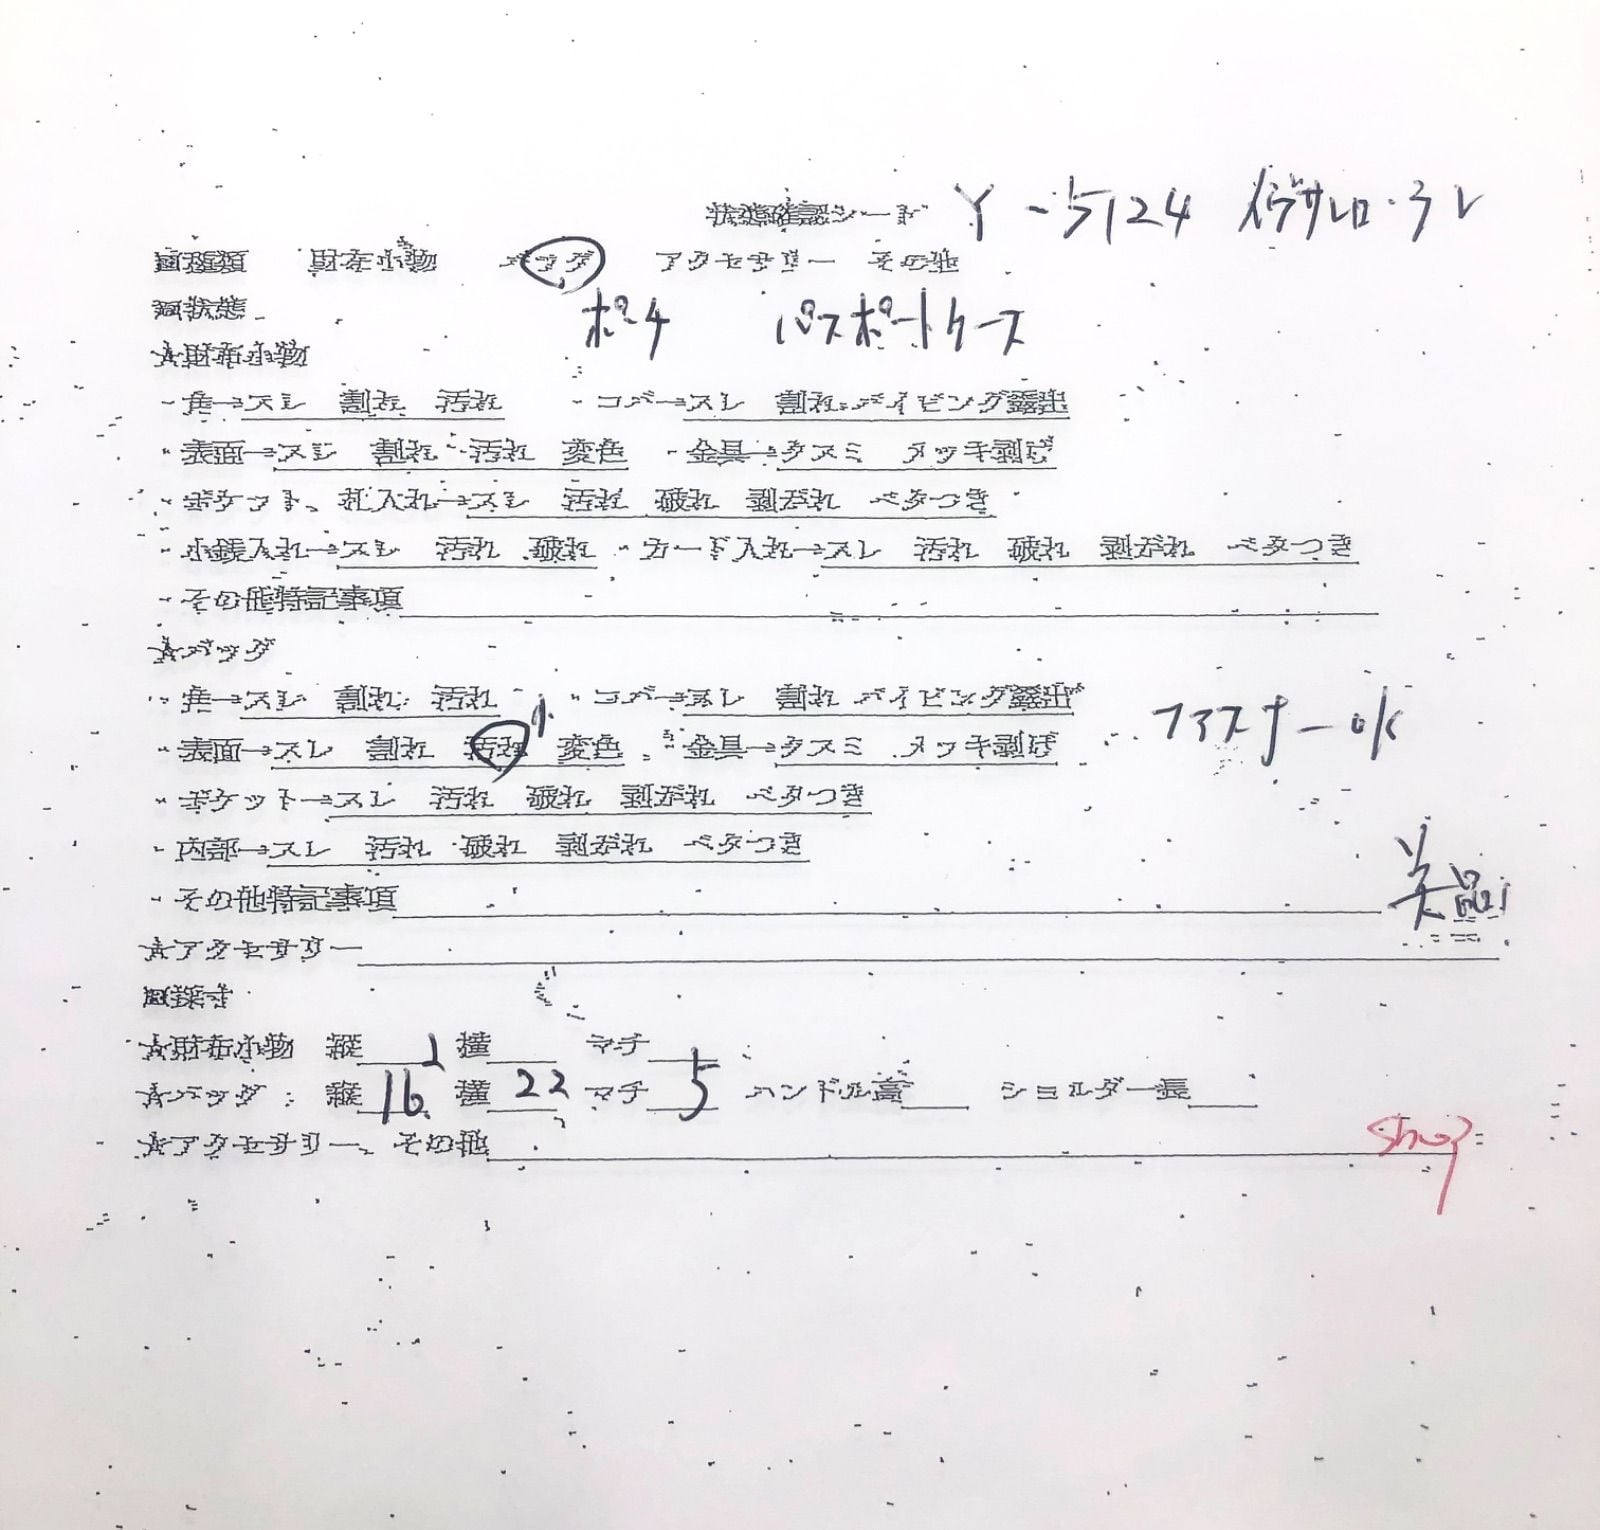 状態確認シート Y-5124 イヴサンローラン
■種類 財布小物 バッグ アクセサリー その他
■状態 ポーチ パスポートケース
★財布小物
・角→スレ 割れ 汚れ ・コバ→スレ 割れ パイピング露出
・表面→スレ 割れ 汚れ 変色 ・金具→クスミ メッキ剥げ
・ポケット、札入れ→スレ 汚れ 破れ 剥がれ ベタつき
・小銭入れ→スレ 汚れ 破れ ・カード入れ→スレ 汚れ 破れ 剥がれ ベタつき
・その他特記事項
★バッグ
・角→スレ 割れ 汚れ ・コバ→スレ 割れ パイピング露出
・表面→スレ 割れ 汚れ 小 変色 ・金具→クスミ メッキ剥げ ファスナーok
・ポケット→スレ 汚れ 破れ 剥がれ ベタつき
・内部→スレ 汚れ 破れ 剥がれ ベタつき
・その他特記事項 美品
★アクセサリー
■採寸
★財布小物 縦 横 マチ
★バッグ 縦 16 横 22 マチ 5 ハンドル高 ショルダー長
★アクセサリー、その他